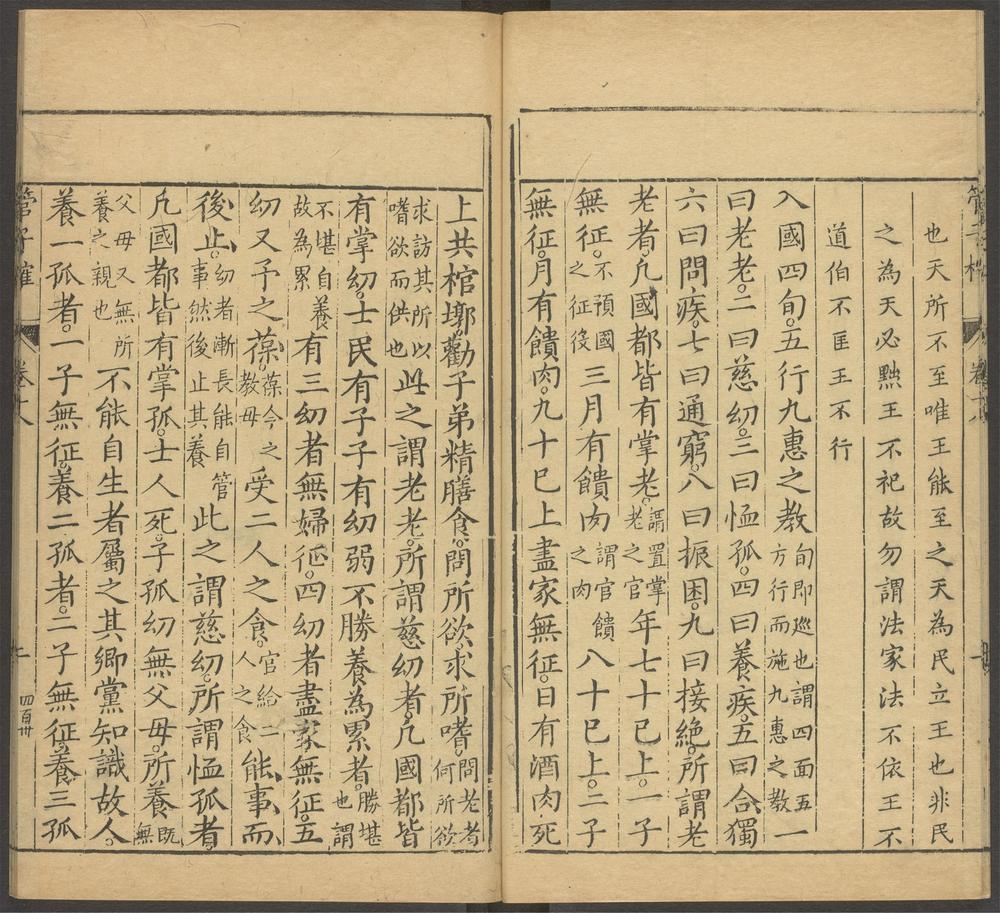 也天所不至唯王能至之天為民立王也非民
之為天必㸃王不祀故勿謂法家法不依王不
道伯不匡王不行
入國四旬五行九惠之教旬即巡也謂四面五方行而施九惠之教一
曰老老二曰慈幼三曰恤孤四曰養疾五曰合獨
六曰問疾七曰通窮八曰振困九曰接絶所謂老
老者凡國都皆有掌老謂置掌老之官年七十已上一子
無征不預國之征役三月有饋肉謂官饋之肉八十已上二子
無征月有饋肉九十已上盡家無征日有酒肉死
上共棺槨勸子弟精膳食問所欲求所嗜問老者何所欲
求訪其所以嗜欲而供也此之謂老老所謂慈幼者凡國都皆
有掌幼士民有子子有幼弱不勝養為累者勝堪也謂
不堪自養故為累有三幼者無婦征四幼者盡家無征五
幼又予之葆葆今之教母受二人之食官給二人之食能事而
後止幼者漸長能自管事然後止其養此之謂慈幼所謂恤孤者
凡國都皆有掌孤士人死子孤幼無父母所養既無
父母又無所養之親也不能自生者屬之其鄉黨知識故人
養一孤者一子無征養二孤者二子無征養三孤
管子榷
卷十八
四百卅